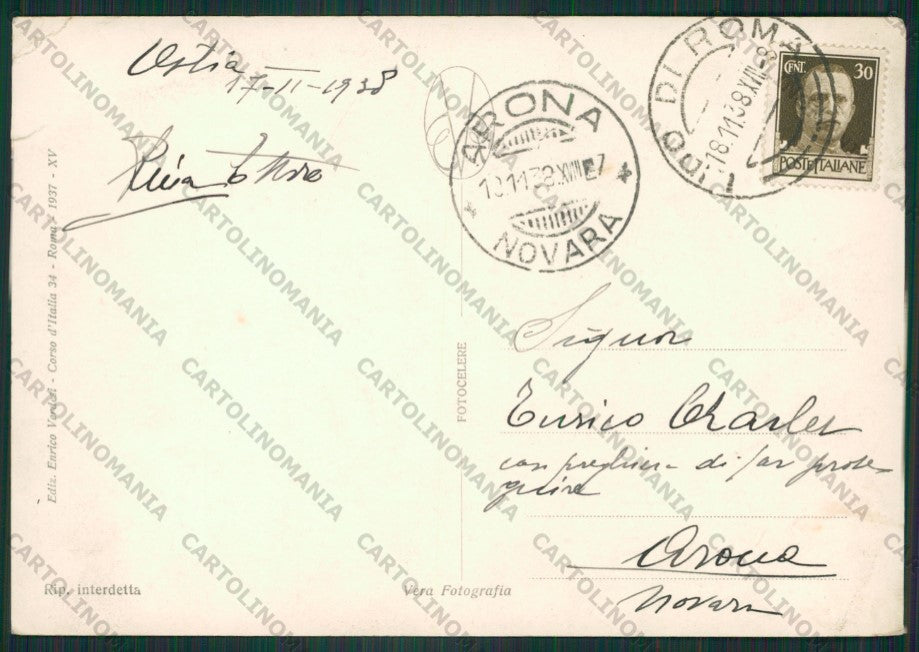 Ostia
17-11-1938
ARONA
NOVARA
LIDO DI ROMA
18.11.38.XVII
CENT. 30
POSTE ITALIANE
Signor
Enrico Charles
con preghiera di far prose-
guire
Arona
Novara
FOTOCELERE
Ediz. Enrico Verdesi - Corso d'Italia 34 - Roma - 1937 - XV
Rip. interdetta
Vera Fotografia
CARTOLINOMANIA